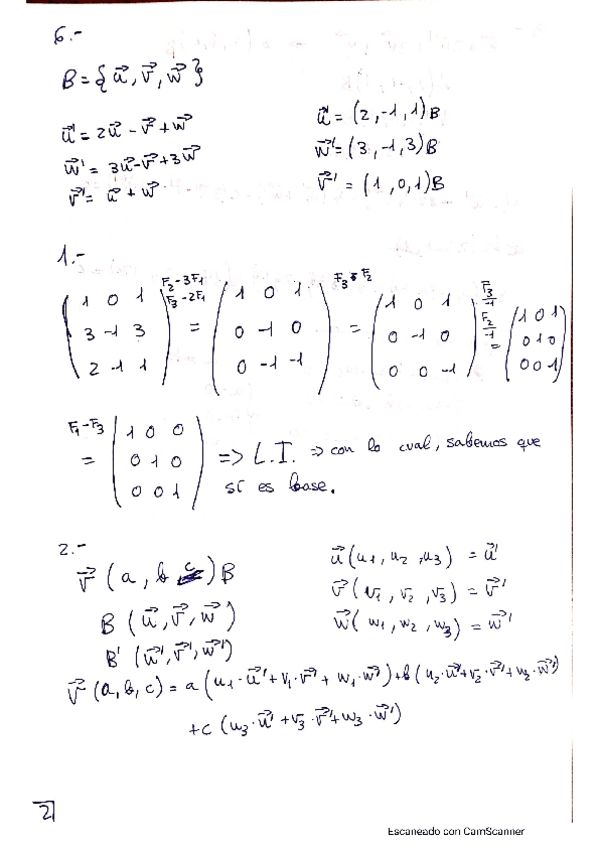 6.-
B = { u⃗, v⃗, w⃗ }
u⃗' = 2u⃗ - v⃗ + w⃗
w⃗' = 3u⃗ - v⃗ + 3w⃗
v⃗' = u⃗ + w⃗
u⃗' = (2, -1, 1)B
w⃗' = (3, -1, 3)B
v⃗' = (1, 0, 1)B
1.-
F2-3F1
F3-2F1
F3-F2
F3/-1
F2/-1
1 0 1 | 1 0 1 | 1 0 1 | 1 0 1
3 -1 3 = 0 -1 0 = 0 -1 0 = 0 1 0
2 -1 1 | 0 -1 -1 | 0 0 -1 | 0 0 1
F1-F3
1 0 0
= 0 1 0 => L.I. => con lo cual, sabemos que
0 0 1 sí es base.
2.-
v⃗ (a, b, c)B
B (u⃗, v⃗, w⃗)
B' (u⃗', v⃗', w⃗')
u⃗ (u1, u2, u3) = u⃗'
v⃗ (v1, v2, v3) = v⃗'
w⃗ (w1, w2, w3) = w⃗'
v⃗ (a, b, c) = a (u1·u⃗' + v1·v⃗' + w1·w⃗') + b (u2·u⃗' + v2·v⃗' + w2·w⃗')
+ c (u3·u⃗' + v3·v⃗' + w3·w⃗')
2
Escaneado con CamScanner